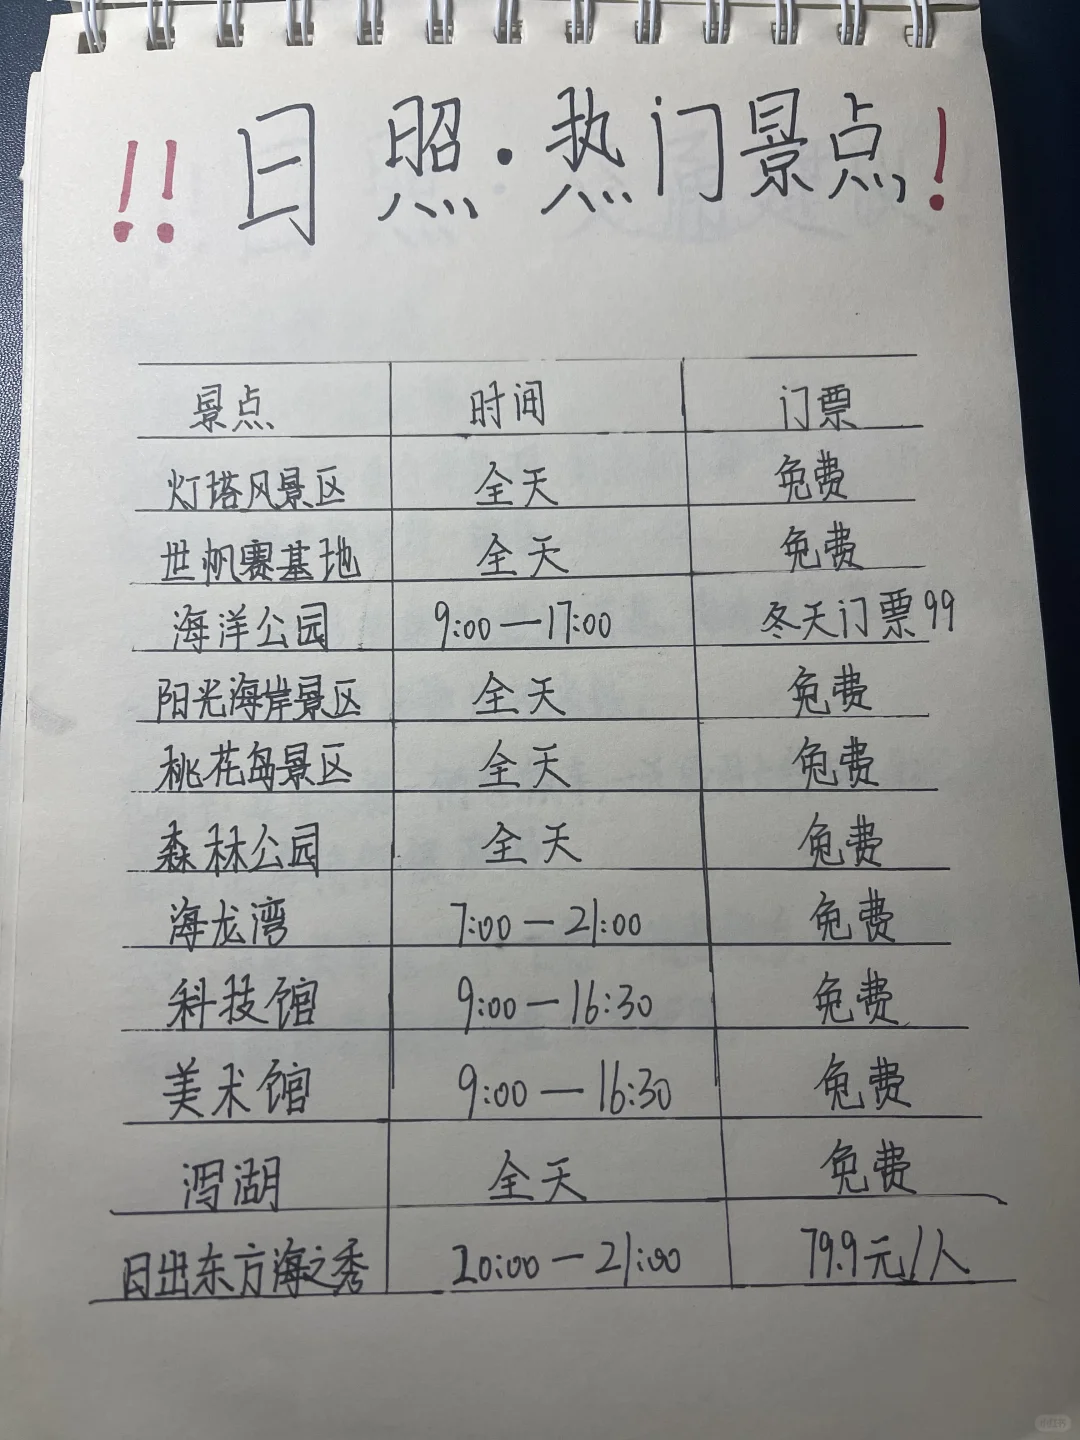 !! 日照·热门景点!
景点 时间 门票
灯塔风景区 全天 免费
世帆赛基地 全天 免费
海洋公园 9:00—17:00 冬天门票99
阳光海岸景区 全天 免费
桃花岛景区 全天 免费
森林公园 全天 免费
海龙湾 7:00—21:00 免费
科技馆 9:00—16:30 免费
美术馆 9:00—16:30 免费
泻湖 全天 免费
日出东方海之秀 20:00—21:00 79.9元/人
小红书